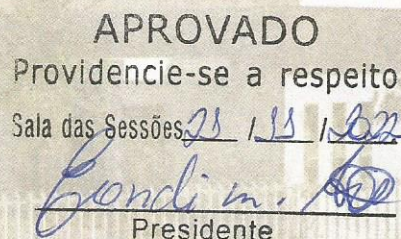 APROVADO
Providencie-se a respeito
Sala das Sessões 21 / 11 / 2022
Presidente